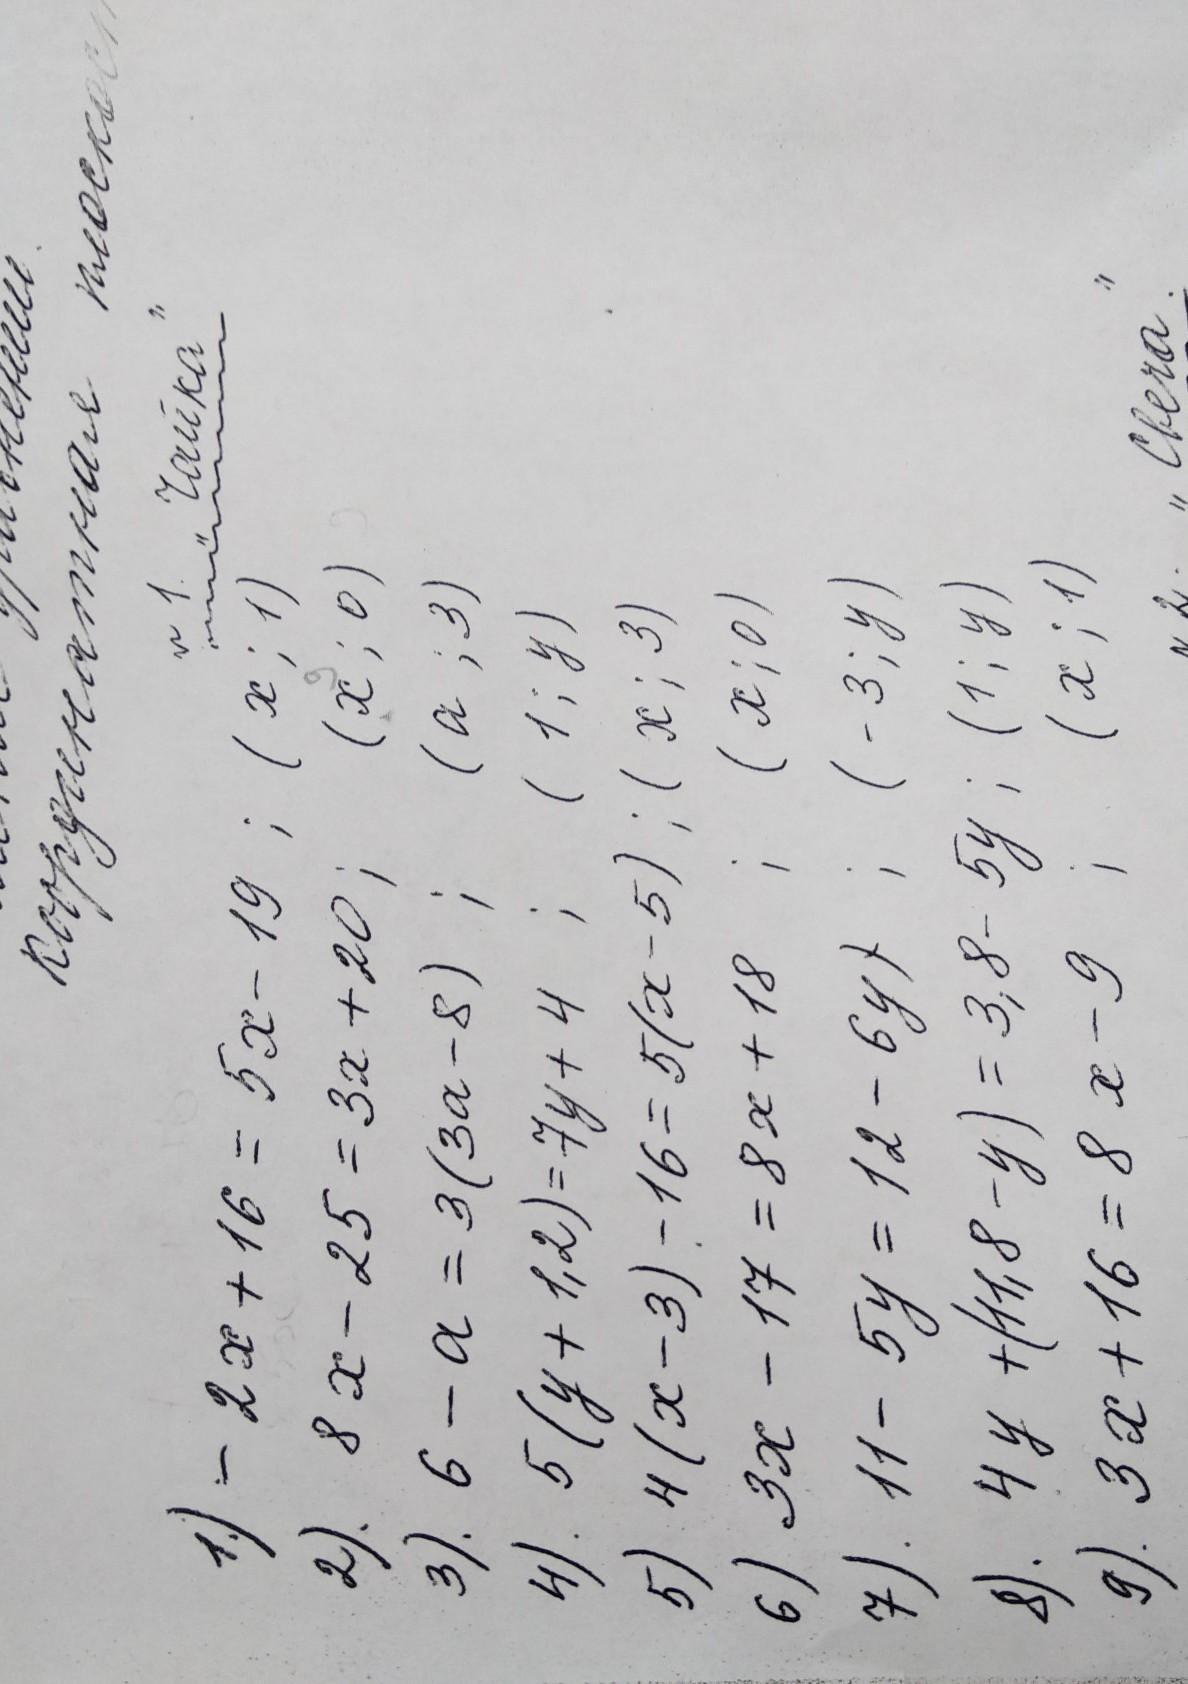 уравнения.
Координатная
N 1 "Чайка"
1.) - 2x + 16 = 5x - 19 ; (x ; 1)
2). 8x - 25 = 3x + 20 ; (x ; 0)
3). 6 - a = 3(3a - 8) ; (a ; 3)
4). 5(y + 1,2) = 7y + 4 ; (1 ; y)
5) 4(x - 3) - 16 = 5(x - 5) ; (x ; 3)
6) 3x - 17 = 8x + 18 ; (x ; 0)
7). 11 - 5y = 12 - 6y ; (-3 ; y)
8). 4y + (11,8 - y) = 3,8 - 5y ; (1 ; y)
9). 3x + 16 = 8x - 9 ; (x ; 1)
N 2. "Свеча"